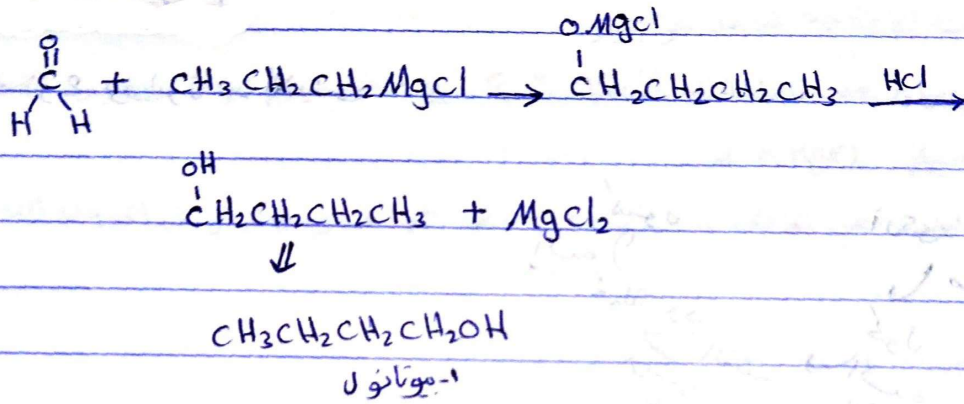 O
OMgCl
C + CH3CH2CH2MgCl → CH2CH2CH2CH3 HCl →
H H
OH
CH2CH2CH2CH3 + MgCl2
⇓
CH3CH2CH2CH2OH
١-بيوتانول